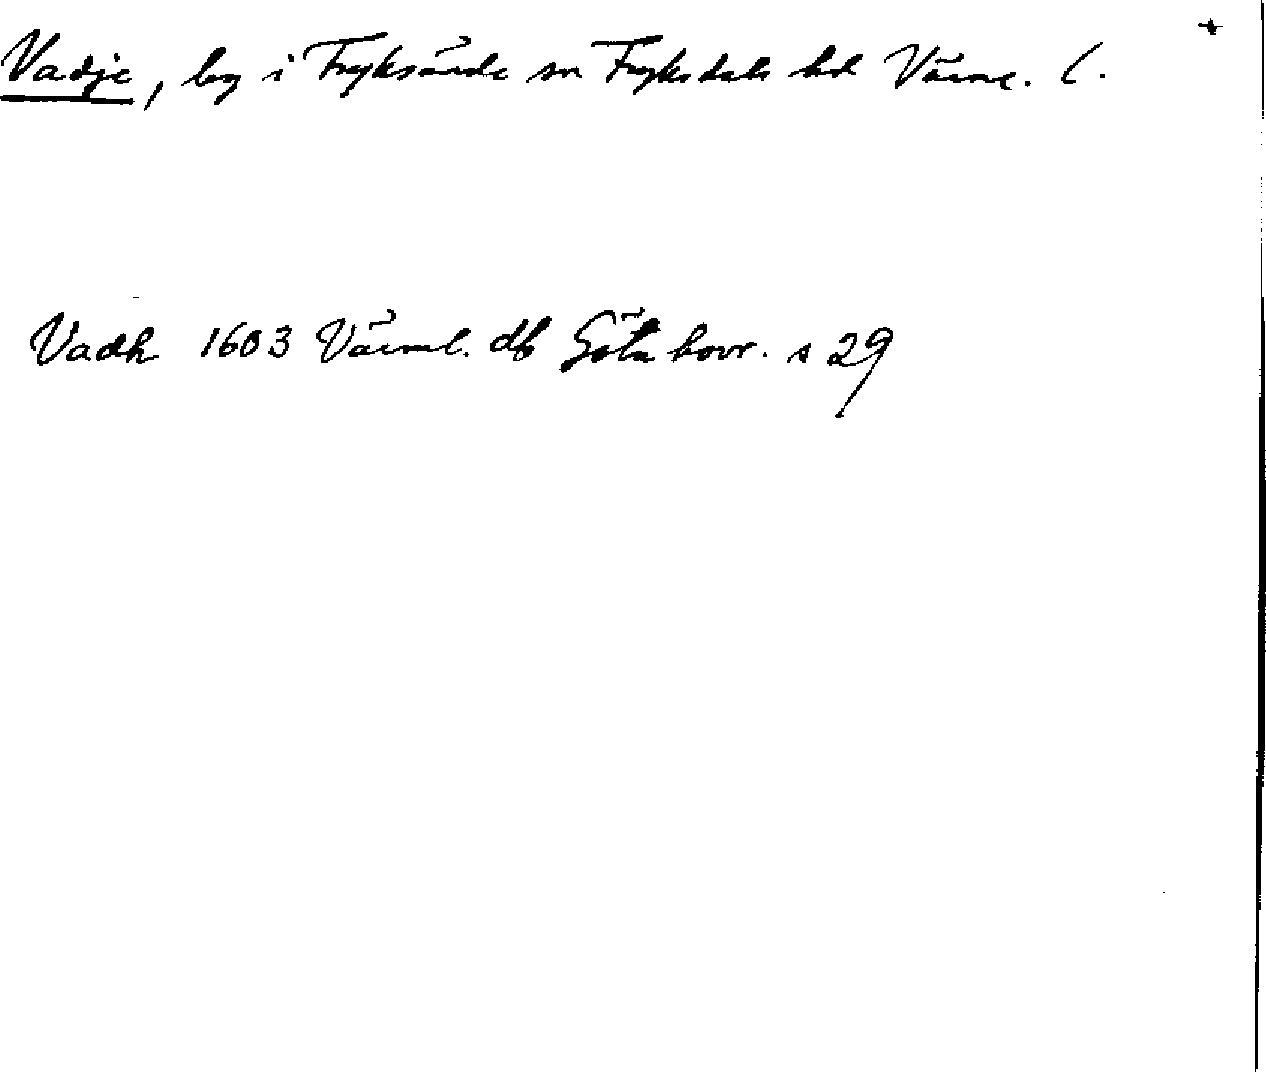 Vadje, by i Fryksände sn Fryksdals hd Värml. l.
Vadh 1603 Värml. db Göta hovr. s 29